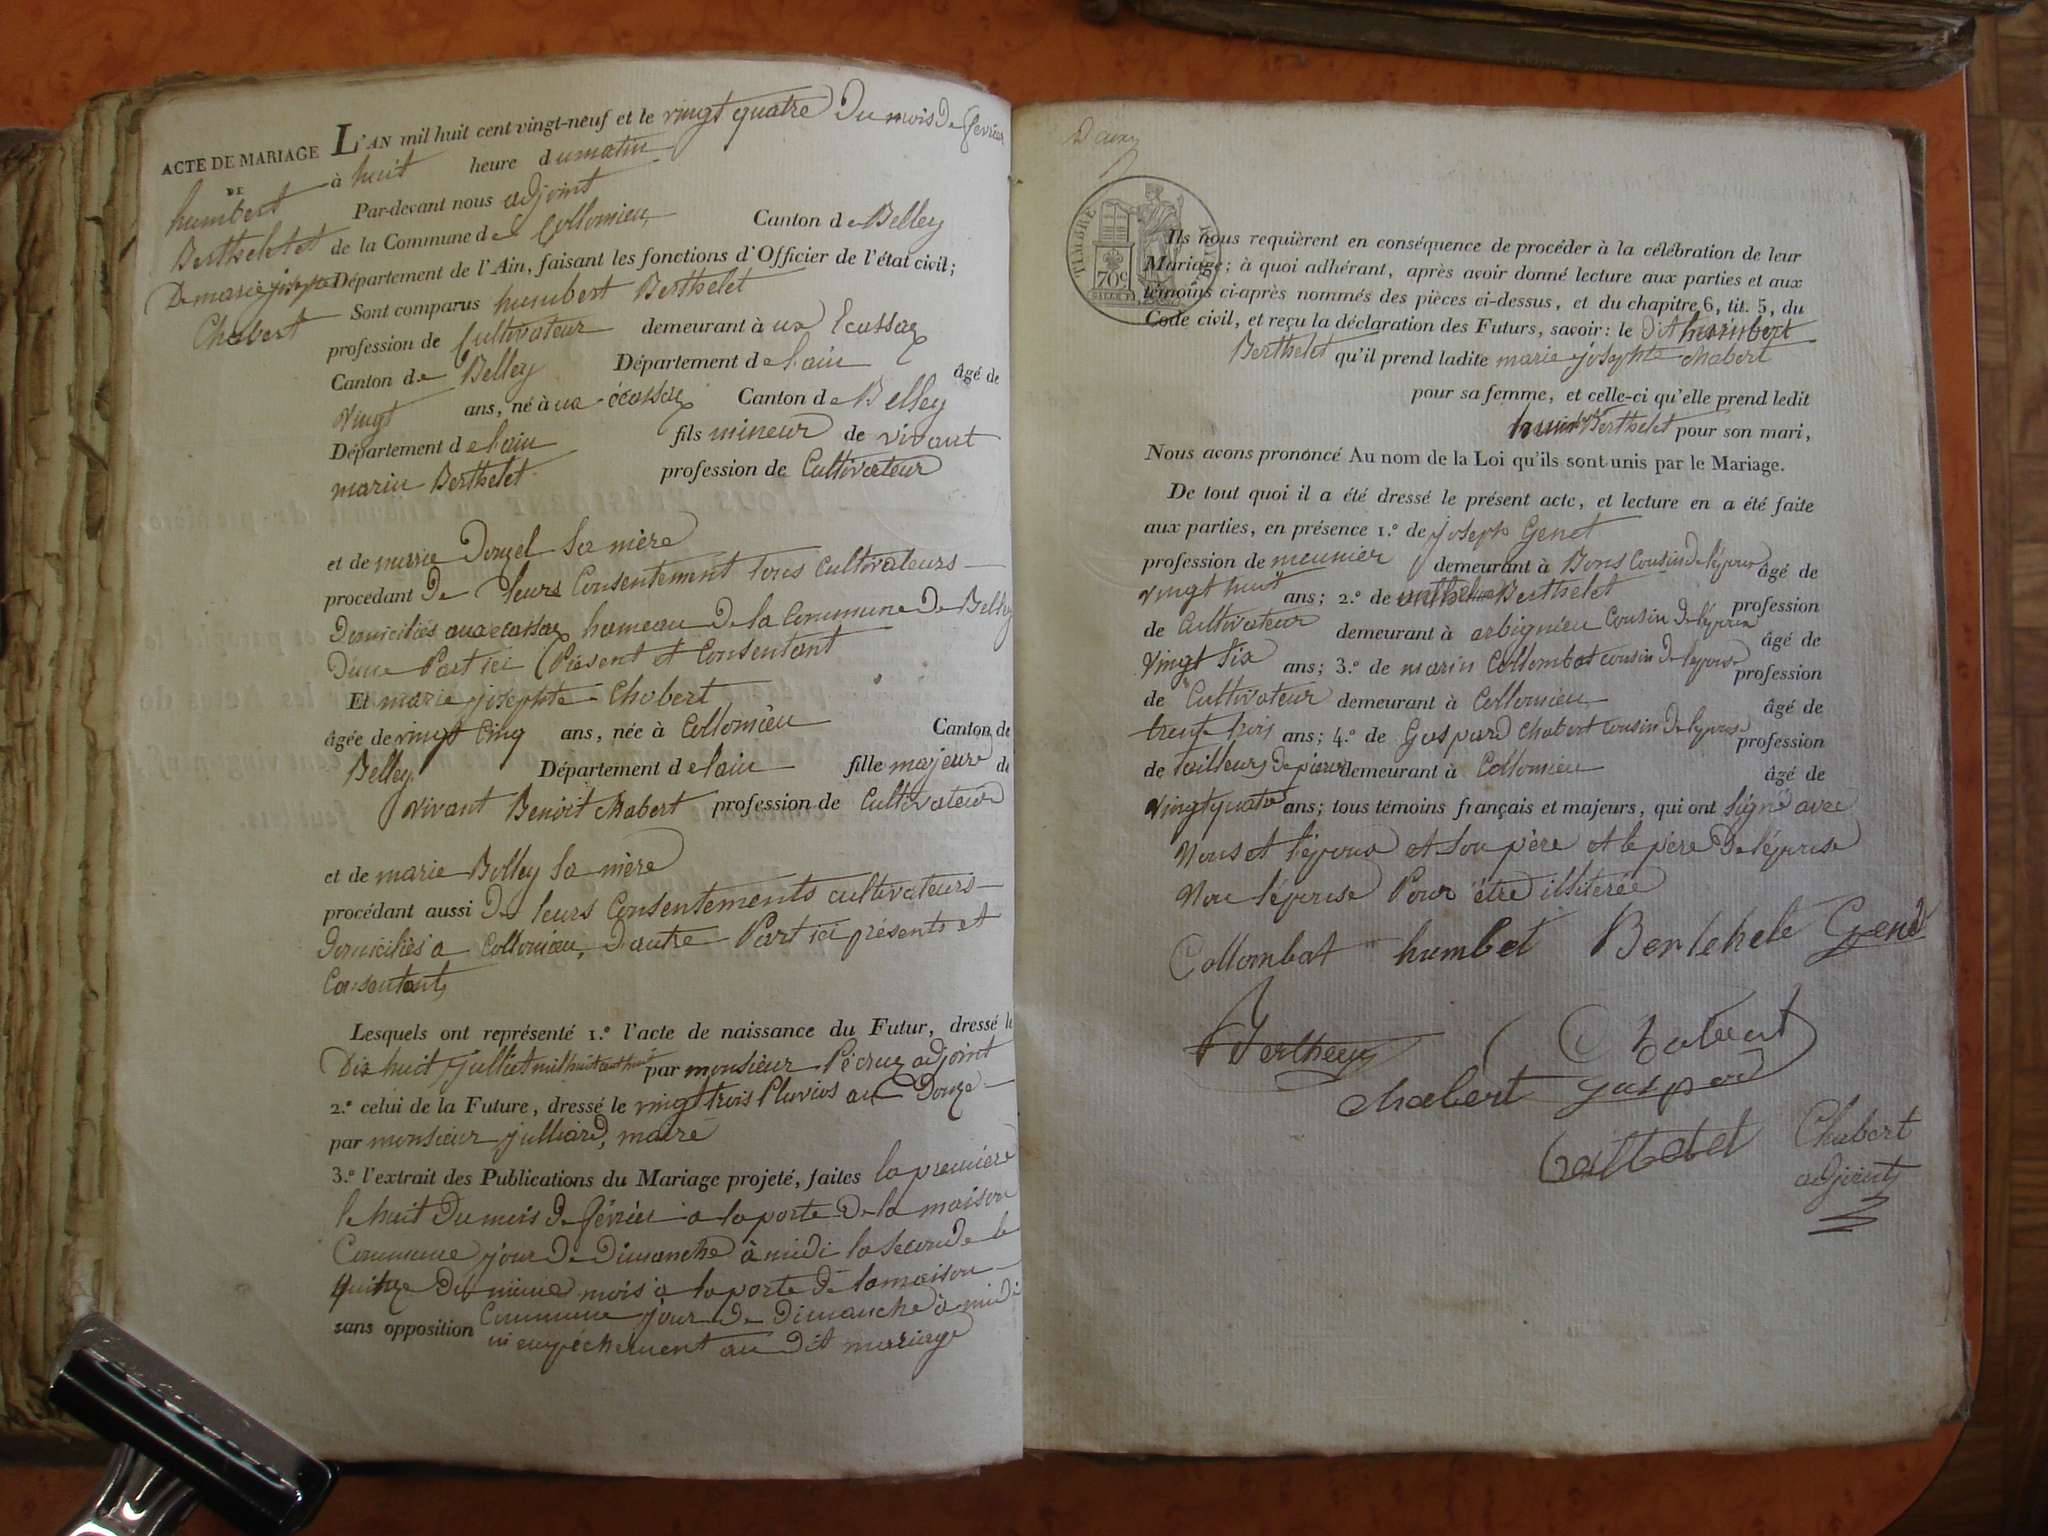 ACTE DE MARIAGE
DE
humbert
Berthelet et
De marie josephte
Chabert
L'AN mil huit cent vingt-neuf et le vingt quatre Du mois De fevrier
à huit heure du matin
Par-devant nous adjoint
de la Commune de Collomieu Canton de Belley
Département de l'Ain, faisant les fonctions d'Officier de l'état civil;
Sont comparus humbert Berthelet
profession de Cultivateur demeurant à ux Ecassaz
Canton de Belley Département de lain âgé de
vingt ans, né à ux écassaz Canton de Belley
Département de lain fils mineur de vivant
marin Berthelet profession de Cultivateur
et de marie Douzel Sa mère
procédant De leurs Consentement tous Cultivateurs
Domiciliés aux ecassaz hameau De la Commune De Belley
Dune Part ici Présent et Consentant
Et marie josephte Chabert
âgée de vingt Cinq ans, née à Collomieu Canton de
Belley Département de lain fille majeure de
vivant Benoit Chabert profession de Cultivateur
et de marie Bolley Sa mère
procédant aussi De leurs Consentements cultivateurs
Domiciliés a Collomieu, D'autre Part ici présents et
Consentants
Lesquels ont représenté 1.º l'acte de naissance du Futur, dressé le
Dix huit juillet mil huit cent huit par monsieur Pécruz adjoint
2.º celui de la Future, dressé le vingt trois Pluvios an Douze
par monsieur julliard, maire
3.º l'extrait des Publications du Mariage projeté, faites la première
le huit Du mois De février a la porte De la maison
Commune jour De Dimanche à midi la Seconde le
quinze Du même mois a la porte De la maison
sans opposition Commune jour De Dimanche à midi
ni empéchement au Dit mariage
TIMBRE ROYAL
70 c
Ils nous requièrent en conséquence de procéder à la célébration de leur
Mariage; à quoi adhérant, après avoir donné lecture aux parties et aux
témoins ci-après nommés des pièces ci-dessus, et du chapitre 6, tit. 5, du
Code civil, et reçu la déclaration des Futurs, savoir: le dit humbert
Berthelet qu'il prend ladite marie josephte chabert
pour sa femme, et celle-ci qu'elle prend ledit
Berthelet pour son mari,
Nous avons prononcé Au nom de la Loi qu'ils sont unis par le Mariage.
De tout quoi il a été dressé le présent acte, et lecture en a été faite
aux parties, en présence 1.º de joseph Genet
profession de meunier demeurant à Bons Cousin De l'époux âgé de
vingt huit ans; 2.º de anthelme Berthelet profession
de Cultivateur demeurant à arbignieu Cousin De l'époux âgé de
vingt Six ans; 3.º de marin Collombat cousin De l'épouse profession
de Cultivateur demeurant à Collomieu âgé de
trente trois ans; 4.º de Gaspard Chabert cousin De l'épouse profession
de tailleurs De pierre demeurant à Collomieu âgé de
vingt quatre ans; tous témoins français et majeurs, qui ont Signé avec
Nous et l'époux et Son père et le père De l'épouse
Non l'épouse Pour être illiterée
Collombat humbet Bertehelé Genet
Chabert
chabert gaspard
Chabert
adjoint